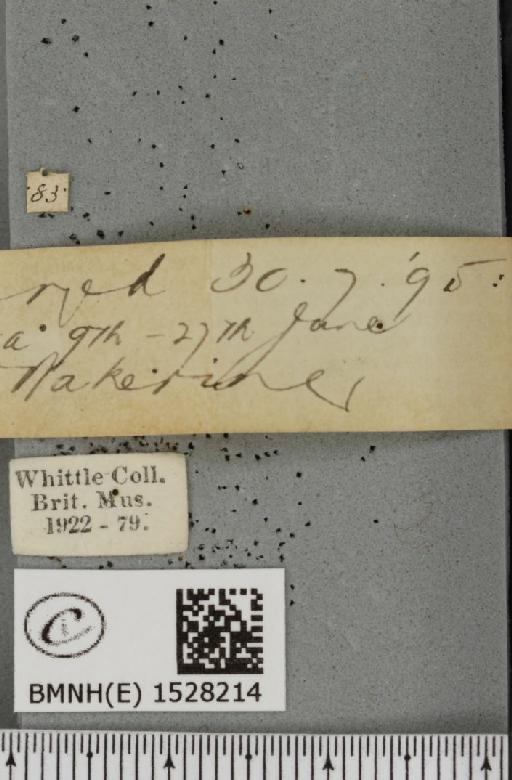 83
30.7.'95:
a. 9th - 27th June
Whittle Coll.
Brit. Mus.
1922 - 79.
C
BMNH(E) 1528214